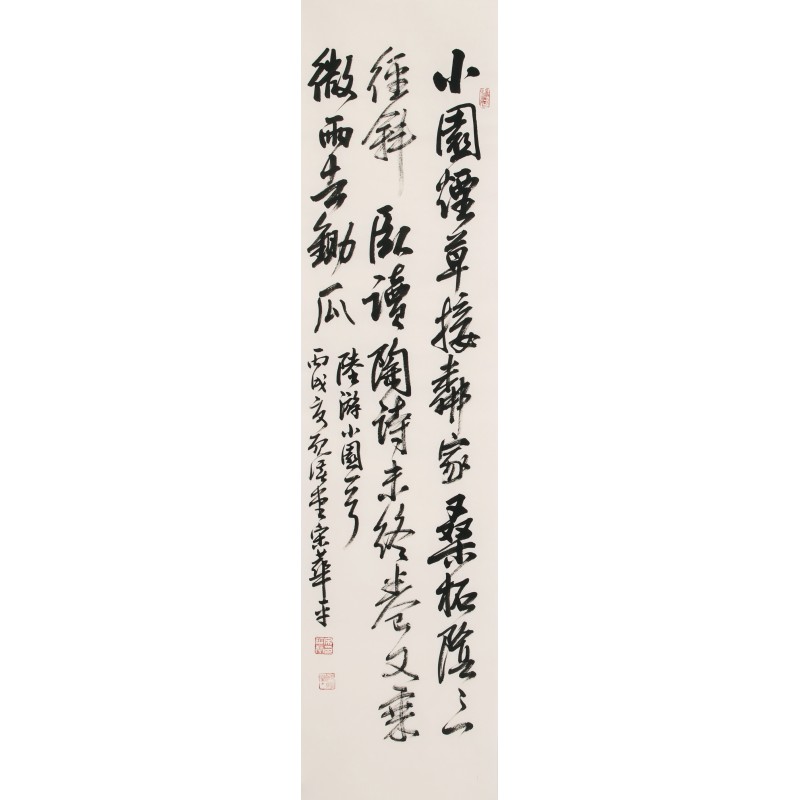 小園煙草接鄰家桑柘陰陰一
徑斜臥讀陶詩未終卷又乘
微雨去鋤瓜
陸游小園一首
丙戌夏宋華平